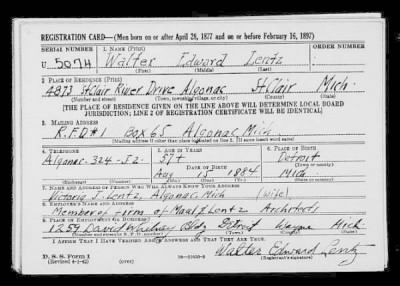 REGISTRATION CARD—(Men born on or after April 28, 1877 and on or before February 16, 1897)
SERIAL NUMBER 1. NAME (Print) ORDER NUMBER
U 5074 Walter Edward Lentz
(First) (Middle) (Last)
2. PLACE OF RESIDENCE (Print)
4873 St Clair River Drive Algonac St Clair Mich
(Number and street) (Town, township, village, or city) (County) (State)
[THE PLACE OF RESIDENCE GIVEN ON THE LINE ABOVE WILL DETERMINE LOCAL BOARD
JURISDICTION; LINE 2 OF REGISTRATION CERTIFICATE WILL BE IDENTICAL]
3. MAILING ADDRESS
R.F.D #1 Box 65 Algonac, Mich
[Mailing address if other than place indicated on line 2. If same insert word same]
4. TELEPHONE 5. AGE IN YEARS 6. PLACE OF BIRTH
57 Detroit
DATE OF BIRTH (Town or county)
Algonac 324-J2 Aug 15 1884 Mich
(Exchange) (Number) (Mo.) (Day) (Yr.) (State or country)
7. NAME AND ADDRESS OF PERSON WHO WILL ALWAYS KNOW YOUR ADDRESS
Victoria J. Lentz, Algonac, Mich (wife)
8. EMPLOYER'S NAME AND ADDRESS
Member of Firm of Maul & Lentz Architects
9. PLACE OF EMPLOYMENT OR BUSINESS
1259 David Whitney Bldg Detroit Wayne Mich
(Number and street or R. F. D. number) (Town) (County) (State)
I AFFIRM THAT I HAVE VERIFIED ABOVE ANSWERS AND THAT THEY ARE TRUE.
D. S. S. Form 1
(Revised 4-1-42) (over) Walter Edward Lentz
(Registrant's signature)